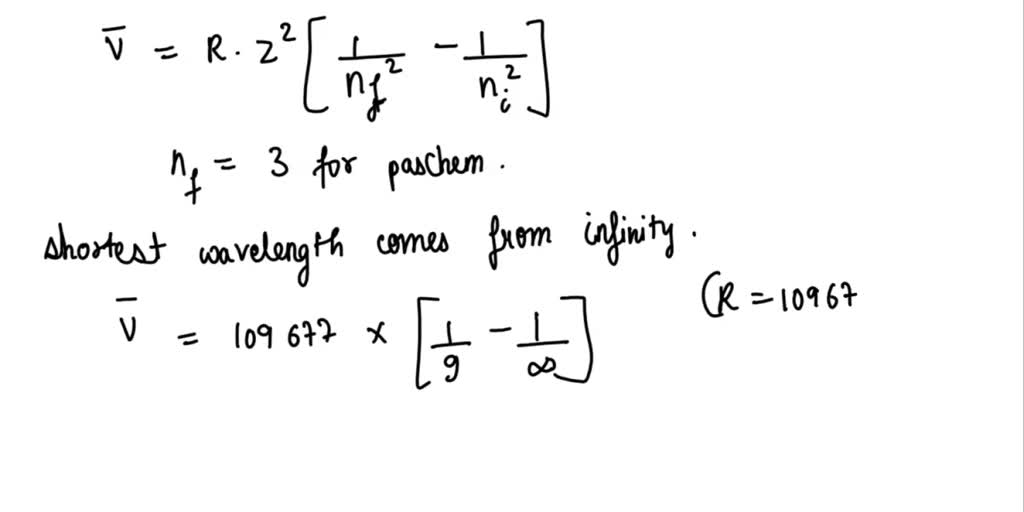 V̅ = R · Z² [ 1/n_f² − 1/n_i² ]
n_f = 3 for paschem .
shortest wavelength comes from infinity .
V̅ = 109 677 × [ 1/9 − 1/∞ ]
(R = 10967